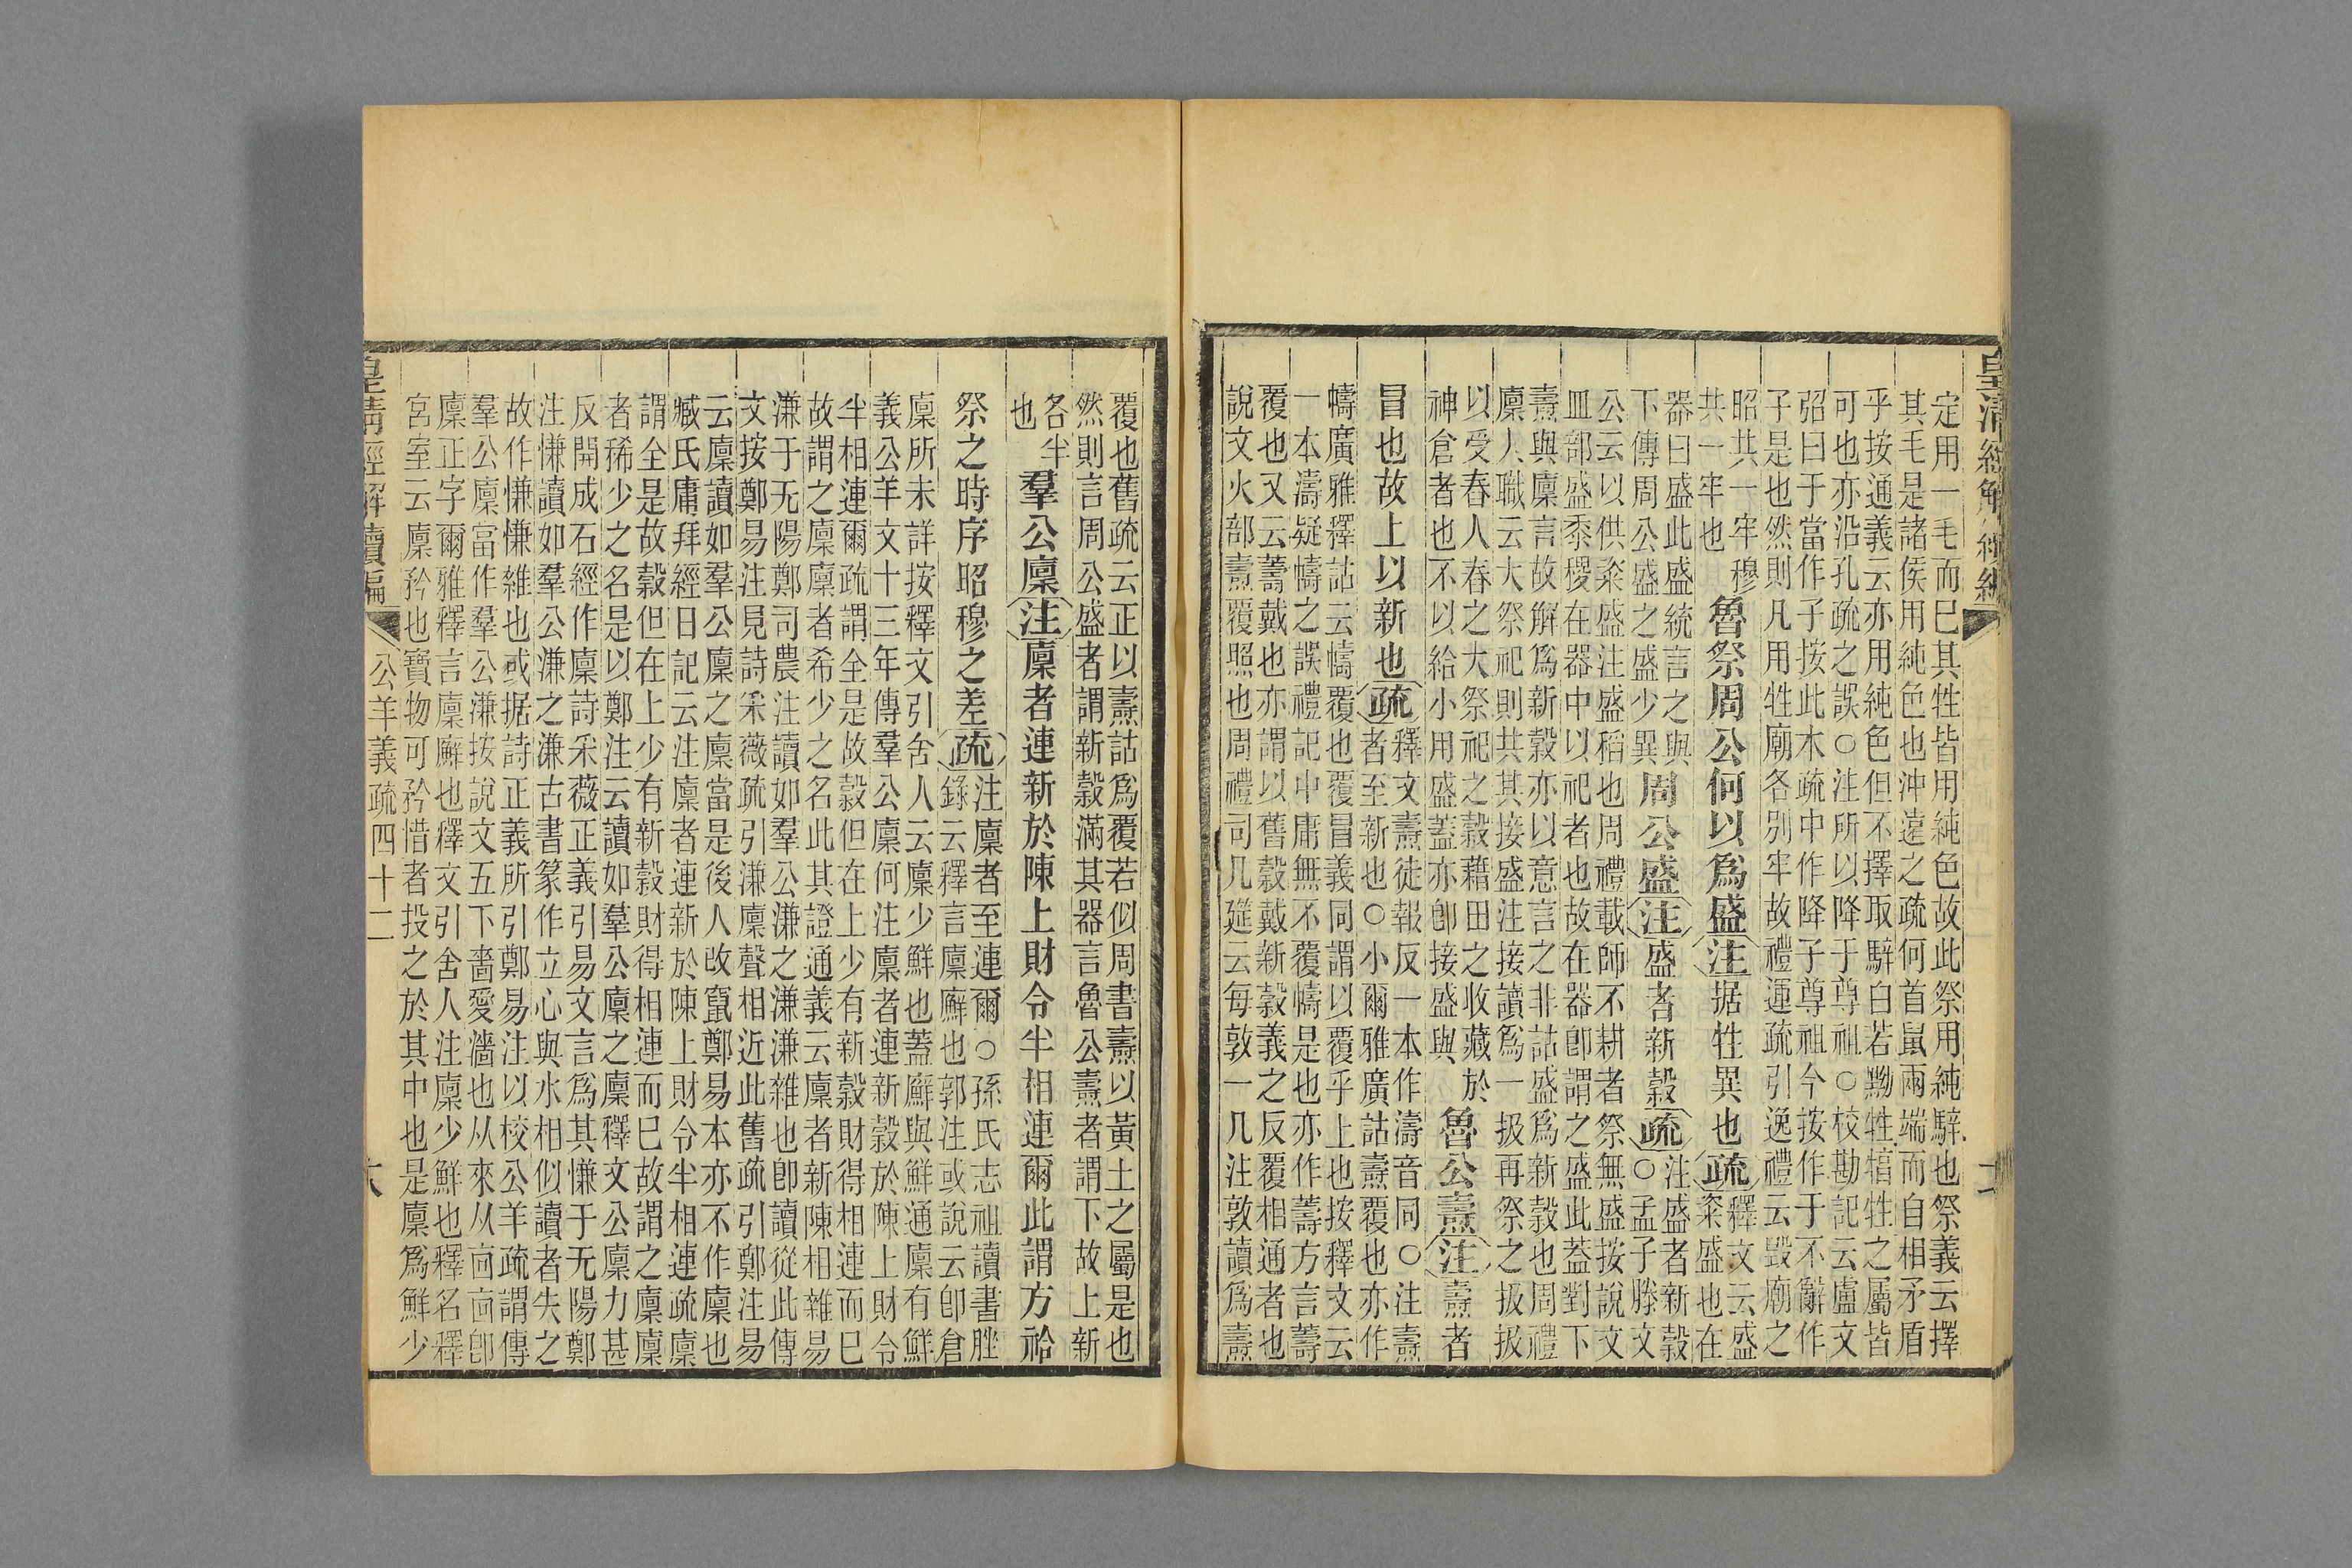 皇清經解續編
定用一毛而巳其牲皆用純色故此祭用純騂也祭義云擇
其毛是諸侯用純色也沖遠之疏何首鼠兩端而自相矛盾
乎按通義云亦用純色但不擇取騂白若黝牲犆牲之屬皆
可也亦沿孔疏之誤○注所以降于尊祖○校勘記云盧文
弨曰于當作子按此本疏中作降子尊祖今按作于不辭作
子是也然則凡用牲廟各別牢故禮運疏引逸禮云毀廟之
昭共一牢穆
共一牢也
魯祭周公何以爲盛注据牲異也疏
釋文云盛
粢盛也在
器曰盛此盛統言之與
下傳周公盛之盛少異
周公盛注盛者新穀疏
注盛者新穀
○孟子滕文
公云以供粢盛注盛稻也周禮載師不耕者祭無盛按說文
皿部盛黍稷在器中以祀者也故在器卽謂之盛此蓋對下
燾與廩言故解爲新穀亦以意言之非詁盛爲新穀也周禮
廩人職云大祭祀則共其接盛注接讀爲一扱再祭之扱扱
以受舂人舂之大祭祀之穀藉田之收藏於
神倉者也不以給小用盛蓋亦卽接盛與
魯公燾注燾者
冒也故上以新也疏
釋文燾徒報反一本作濤音同○注燾
者至新也○小爾雅廣詁燾覆也亦作
幬廣雅釋詁云幬覆也覆冒義同謂以覆乎上也按釋文云
一本濤疑幬之誤禮記中庸無不覆幬是也亦作薵方言薵
覆也又云薵戴也亦謂以舊穀戴新穀義之反覆相通者也
說文火部燾覆照也周禮司几筵云每敦一几注敦讀爲燾
覆也舊疏云正以燾詁爲覆若似周書燾以黃土之屬是也
然則言周公盛者謂新穀滿其器言魯公燾者謂下故上新
各半
也
羣公廩注廩者連新於陳上財令半相連爾此謂方祫
祭之時序昭穆之差疏
注廩者至連爾○孫氏志祖讀書脞
錄云釋言廩廯也郭注或說云卽倉
廩所未詳按釋文引舍人云廩少鮮也蓋廯與鮮通廩有鮮
義公羊文十三年傳羣公廩何注廩者連新穀於陳上財令
半相連爾疏謂全是故穀但在上少有新穀財得相連而巳
故謂之廩廩者希少之名此其證通義云廩者新陳相雜易
溓于无陽鄭司農注讀如羣公溓之溓溓雜也卽讀從此傳
文按鄭易注見詩采薇疏引溓廩聲相近此舊疏引鄭注易
云廩讀如羣公廩之廩當是後人改竄鄭易本亦不作廩也
臧氏庸拜經日記云注廩者連新於陳上財令半相連疏廩
謂全是故穀但在上少有新穀財得相連而巳故謂之廩廩
者稀少之名是以鄭注云讀如羣公廩之廩釋文公廩力甚
反開成石經作廩詩采薇正義引易文言爲其慊于无陽鄭
注慊讀如羣公溓之溓古書篆作立心與水相似讀者失之
故作慊慊雜也或据詩正義所引鄭易注以校公羊疏謂傳
羣公廩當作羣公溓按說文五下嗇愛濇也从來从㐭㐭卽
廩正字爾雅釋言廩廯也釋文引舍人注廩少鮮也釋名釋
宮室云廩矜也寶物可矜惜者投之於其中也是廩爲鮮少
皇清經解續編
公羊義疏四十二
六